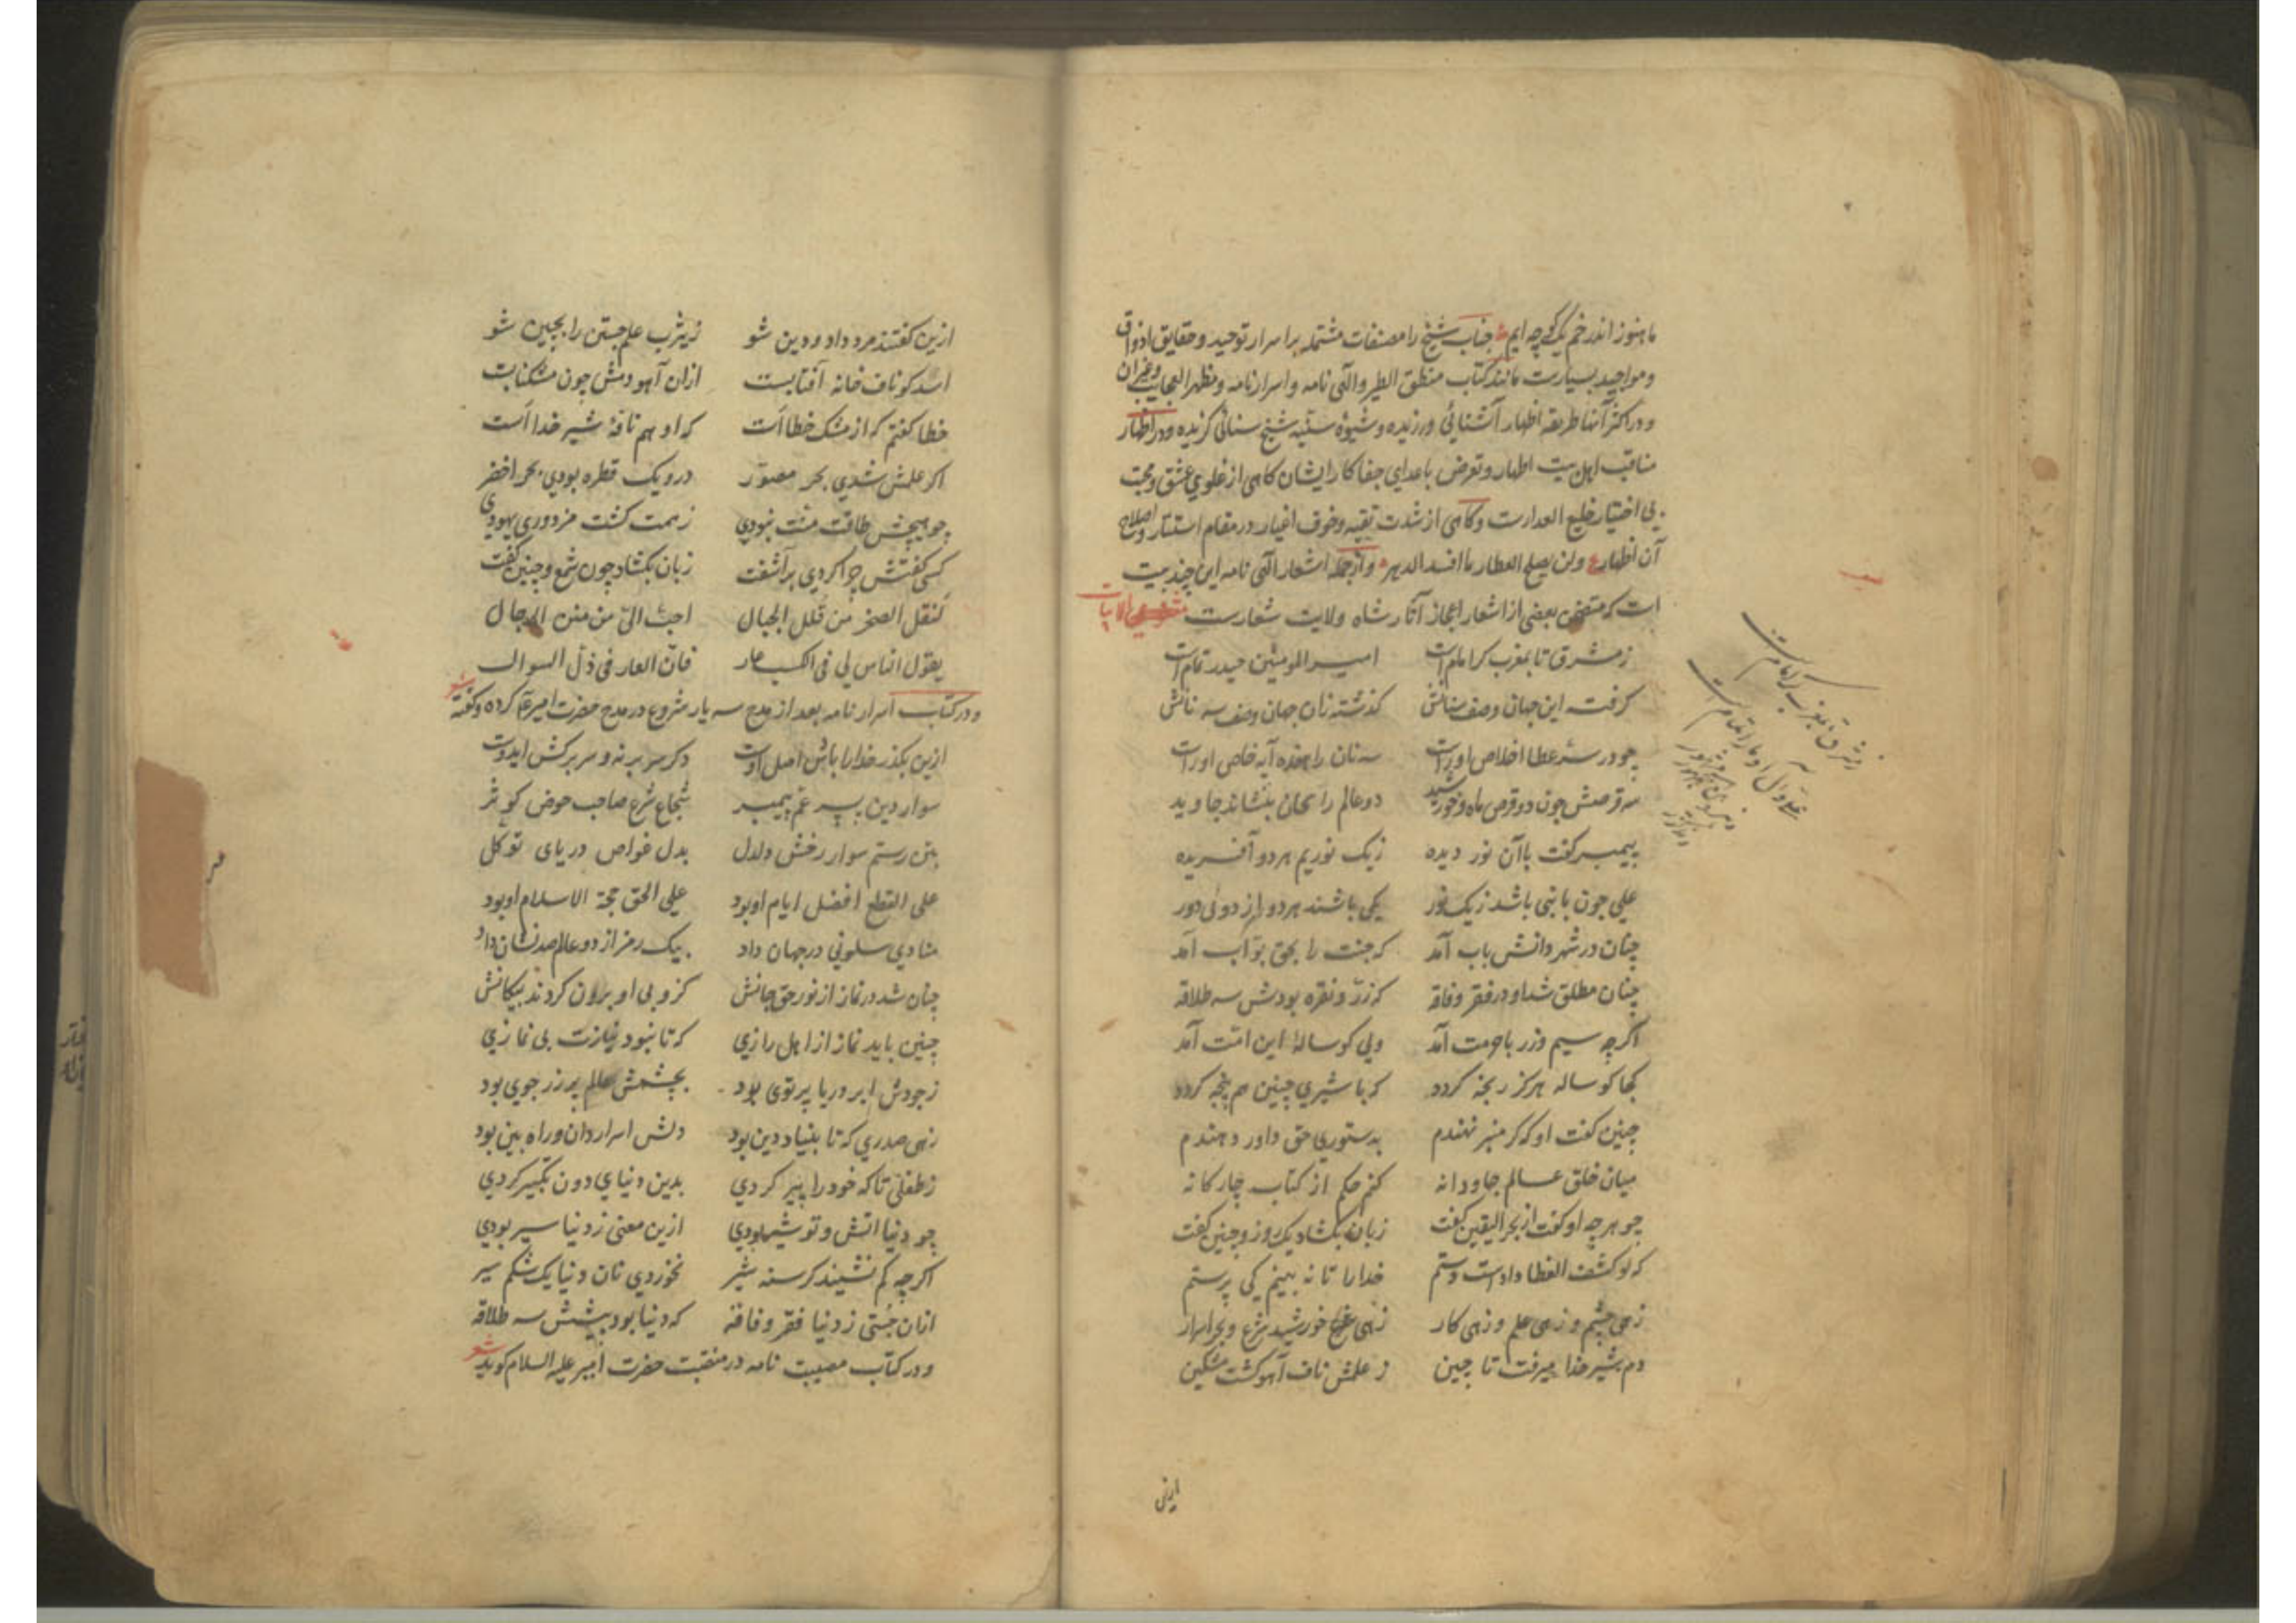 ما هنوز اندر خم یک کوچه ایم جناب شیخ را مصنفات مشتمله بر اسرار توحید و حقایق اذواق
و مواجید بسیارست مانند کتاب منطق الطیر و الٓهی نامه و اسرارنامه و مظهر العجایب و غیر ان
و در اکثر آنها طریقه اظهار آشنائی ورزیده و شیوه سنیه شیخ سنائی گزیده و در اظهار
مناقب اهل بیت اطهار و تعرض باعدای جفاکار ایشان کاهی از غلوی عشق و محبت
بی اختیار خلیع العذارست و کاهی از شدت تقیه و خوف اغیار در مقام استتار و اصلاح
آن اظهار ع ولن یصلح العطار ما افسد الدهر و از جمله اشعار الٓهی نامه این چند بیت
است که متضمن بعضی از اشعار اعجاز آثار شاه ولایت شعارست
ز مشرق تا بمغرب کر امام است امیر المومنین حیدر تمام است
کرفت این جهان وصف سنانش کذشته زان جهان وصف سه نانش
چو در سر عطا اخلاص او راست سه نان را هفده آیه خاص او راست
سه قرصش چون دو قرص ماه و خورشید دو عالم را بخوان بنشاند جاوید
پیمبر کفت با آن نور دیده ز یک نوریم هر دو آفریده
علی چون با نبی باشد ز یک نور یکی باشند هر دو از دوئی دور
چنان در شهر دانش باب آمد که جنت را بحق بواب آمد
چنان مطلق شد او در فقر و فاقه که زر و نقره بودش سه طلاقه
اکرچه سیم و زر با حرمت آمد ولی کوسالهٔ این امت آمد
کجا کوساله هرکز رنجه کردد که با شیری چنین هم پنجه کردد
چنین کفت او که کر منبر نهندم بدستوری حق داور دهندم
میان خلق عالم جاودانه کنم حکم از کتاب چارکانه
چو هرچه او کفت از بحر الیقین کفت زبان بکشاد یک روز و چنین کفت
که لو کشف الغطا دادست دستم خدا را تا نه بینم کی پرستم
زهی چشم و زهی علم و زهی کار زهی خورشید شرع و بحر اسرار
دم شیر خدا میرفت تا چین ز علمش ناف آهو کشت مشکین
ازین
ازین کفتند مرد داد و دین شو ز یثرب علم جستن را بچین شو
اسد کو ناف خانه آفتابست ازان آهو دمش چون مشکنابت
خطا کفتم که از مشک خطا است که او هم نافهٔ شیر خدا است
اکر علمش شدی بحر مصور درو یک قطره بودی بحر اخضر
چو هیچش طاقت منت نبودی ز همت کشت مزدوری یهودی
کسی کفتش چرا کردی برآشفت زبان بکشاد چون شمع و چنین کفت
لنقل الصخر من قلل الجبال احب الیّ من منن الرجال
یقول الناس لی فی الکسب عار فان العار فی ذل السوال
و در کتاب اسرار نامه بعد از مدح سه یار شروع در مدح حضرت امیر ع کرده و کفته شعر
ازین بکذر خدا را باش اصل اوست دکر سر بر نه و سر برکش ایدوست
سوار دین پسر عم پیمبر شجاع شرع صاحب حوض کوثر
بتن رستم سوار رخش دلدل بدل غواص دریای توکل
علی القطع افضل ایام او بود علی الحق حجة الاسلام او بود
منادی سلونی در جهان داد بیک رمز از دو عالم صد نشان داد
چنان شد در نماز از نور حق جانش کزو بی او برون کردند پیکانش
چنین باید نماز از اهل رازی که تا نبود نمازت بی نمازی
ز جودش ابر و دریا پرتوی بود بچشمش عالم پر زر جوی بود
زهی صدری که تا بنیاد دین بود دلش اسراردان و راه بین بود
ز طفلی تا که خود را پیر کردی بدین دنیای دون تکبیر کردی
چو دنیا اتش و تو شیر بودی ازین معنی ز دنیا سیر بودی
اکرچه کم نشیند کرسنه شیر نخوردی نان دنیا یک شکم سیر
ازان جستی ز دنیا فقر و فاقه که دنیا بود پیشش سه طلاقه
و در کتاب مصیبت نامه در منقبت حضرت امیر علیه السلام کوید شعر